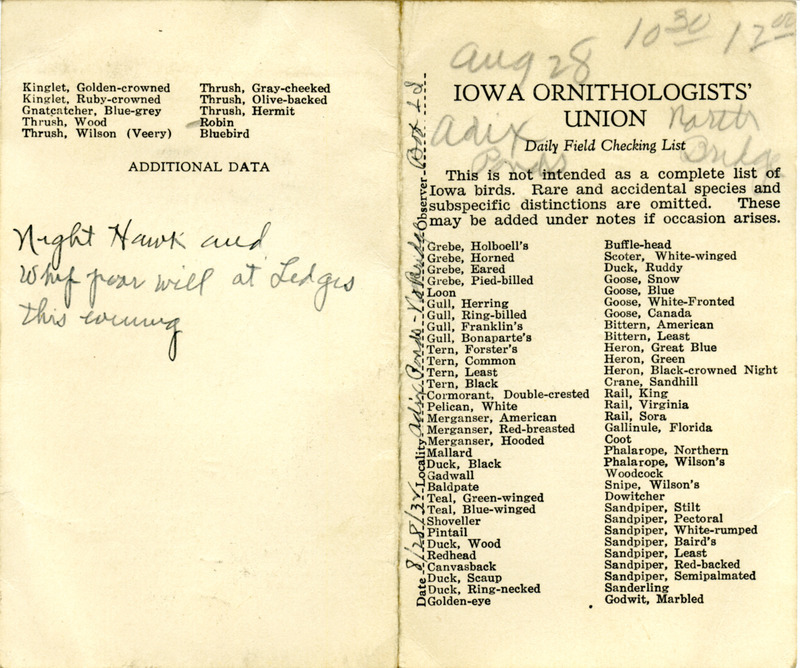 Kinglet, Golden-crowned
Kinglet, Ruby-crowned
Gnatcatcher, Blue-grey
Thrush, Wood
Thrush, Wilson (Veery)
Thrush, Gray-cheeked
Thrush, Olive-backed
Thrush, Hermit
Robin
Bluebird
ADDITIONAL DATA
Night Hawk and
Whip poor will at Ledges
this evening
Aug 28 10 30 12 00
IOWA ORNITHOLOGISTS'
UNION
Adix Ponds
North Bridge
Daily Field Checking List
This is not intended as a complete list of
Iowa birds. Rare and accidental species and
subspecific distinctions are omitted. These
may be added under notes if occasion arises.
Date 8/28/32 Locality Adix Ponds Observer
Grebe, Holboell's
Grebe, Horned
Grebe, Eared
Grebe, Pied-billed
Loon
Gull, Herring
Gull, Ring-billed
Gull, Franklin's
Gull, Bonaparte's
Tern, Forster's
Tern, Common
Tern, Least
Tern, Black
Cormorant, Double-crested
Pelican, White
Merganser, American
Merganser, Red-breasted
Merganser, Hooded
Mallard
Duck, Black
Gadwall
Baldpate
Teal, Green-winged
Teal, Blue-winged
Shoveller
Pintail
Duck, Wood
Redhead
Canvasback
Duck, Scaup
Duck, Ring-necked
Golden-eye
Buffle-head
Scoter, White-winged
Duck, Ruddy
Goose, Snow
Goose, Blue
Goose, White-Fronted
Goose, Canada
Bittern, American
Bittern, Least
Heron, Great Blue
Heron, Green
Heron, Black-crowned Night
Crane, Sandhill
Rail, King
Rail, Virginia
Rail, Sora
Gallinule, Florida
Coot
Phalarope, Northern
Phalarope, Wilson's
Woodcock
Snipe, Wilson's
Dowitcher
Sandpiper, Stilt
Sandpiper, Pectoral
Sandpiper, White-rumped
Sandpiper, Baird's
Sandpiper, Least
Sandpiper, Red-backed
Sandpiper, Semipalmated
Sanderling
Godwit, Marbled